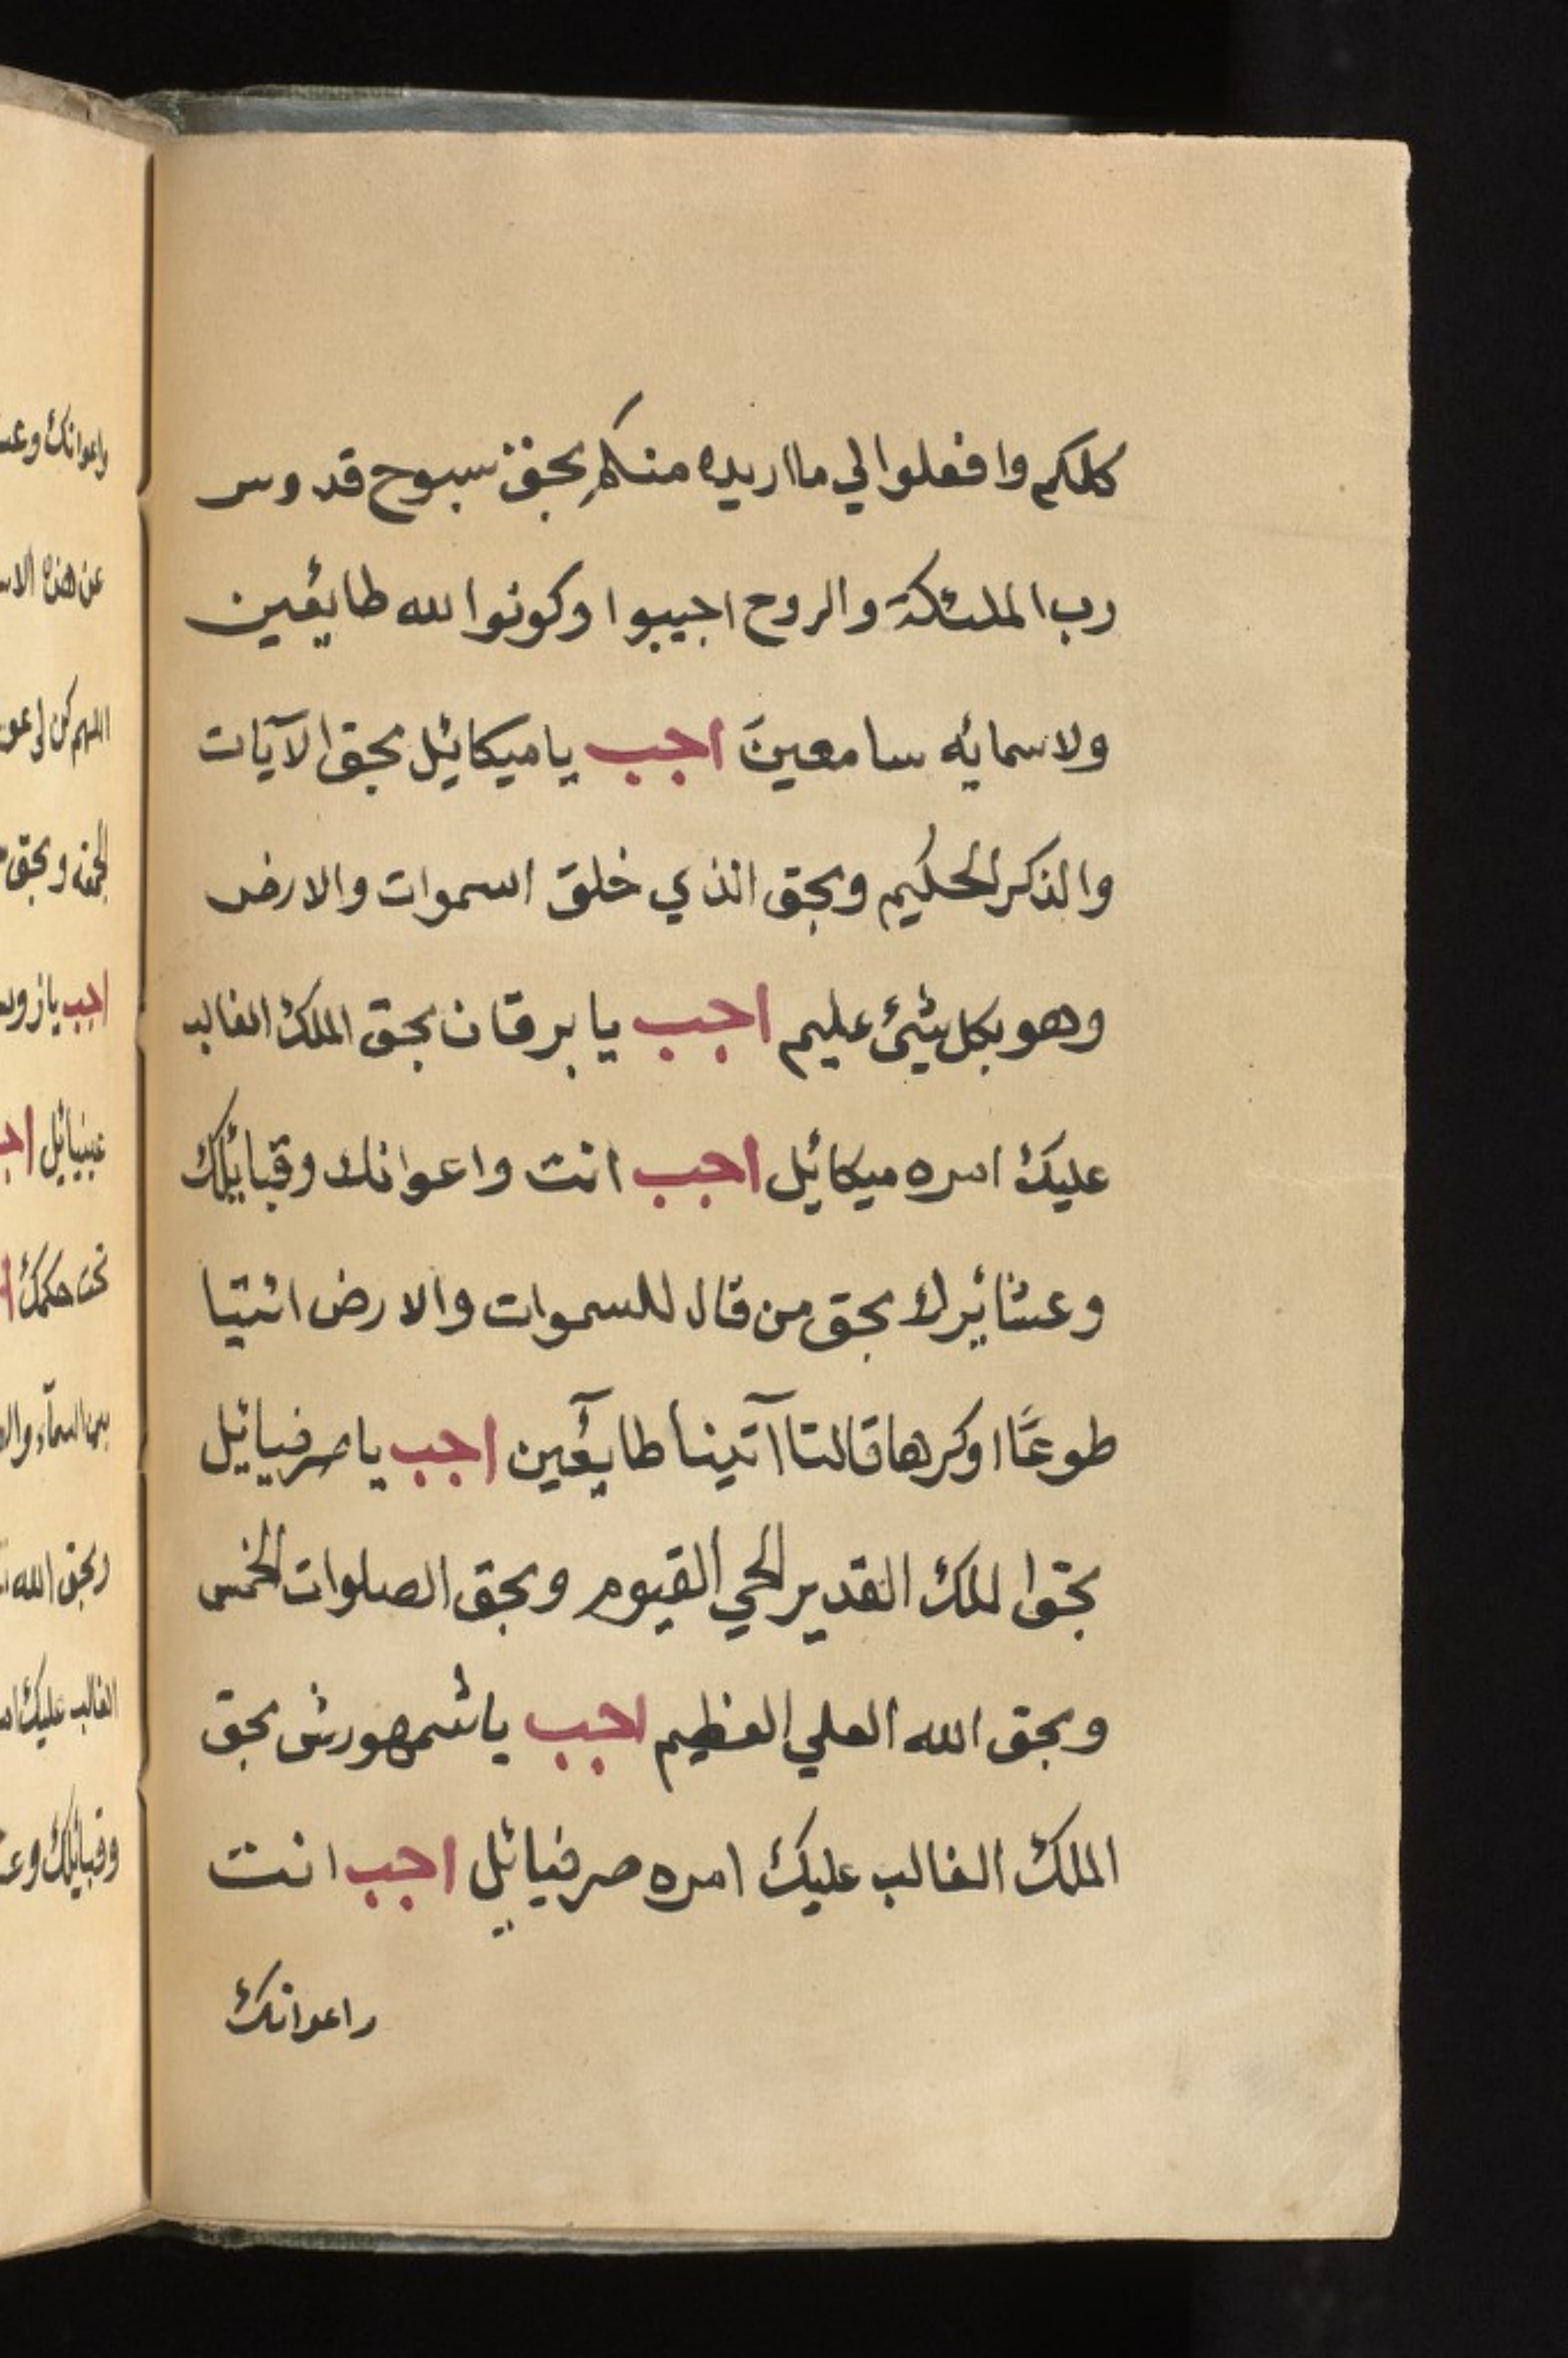 كلكم وافعلوا لي ما اريده منكم بحق سبوح قدوس
رب الملئكة والروح اجيبوا وكونوا لله طائعين
ولاسمائه سامعينَ اجب يا ميكائيل بحق الآيات
والذكر الحكيم وبحق الذي خلق السموات والارض
وهو بكل شيئ عليم اجب يا برقان بحق الملك الغالب
عليك امره ميكائيل اجب انت واعوانك وقبائلك
وعشائرك بحق من قال للسموات والارض ائتيا
طوعًا او كرها قالتا آتينا طائعين اجب يا صرفيائيل
بحق الملك القدير الحي القيوم وبحق الصلوات الخمس
وبحق الله العلي العظيم اجب يا شمهورش بحق
الملك الغالب عليك امره صرفيائيل اجب انت
واعوانك
واعوانك
عن هذه
اللهم كن لي
وبحق
اجب يا
عينيائيل
تحت حكمك
وبحق الله
الغالب عليك
وقبائلك